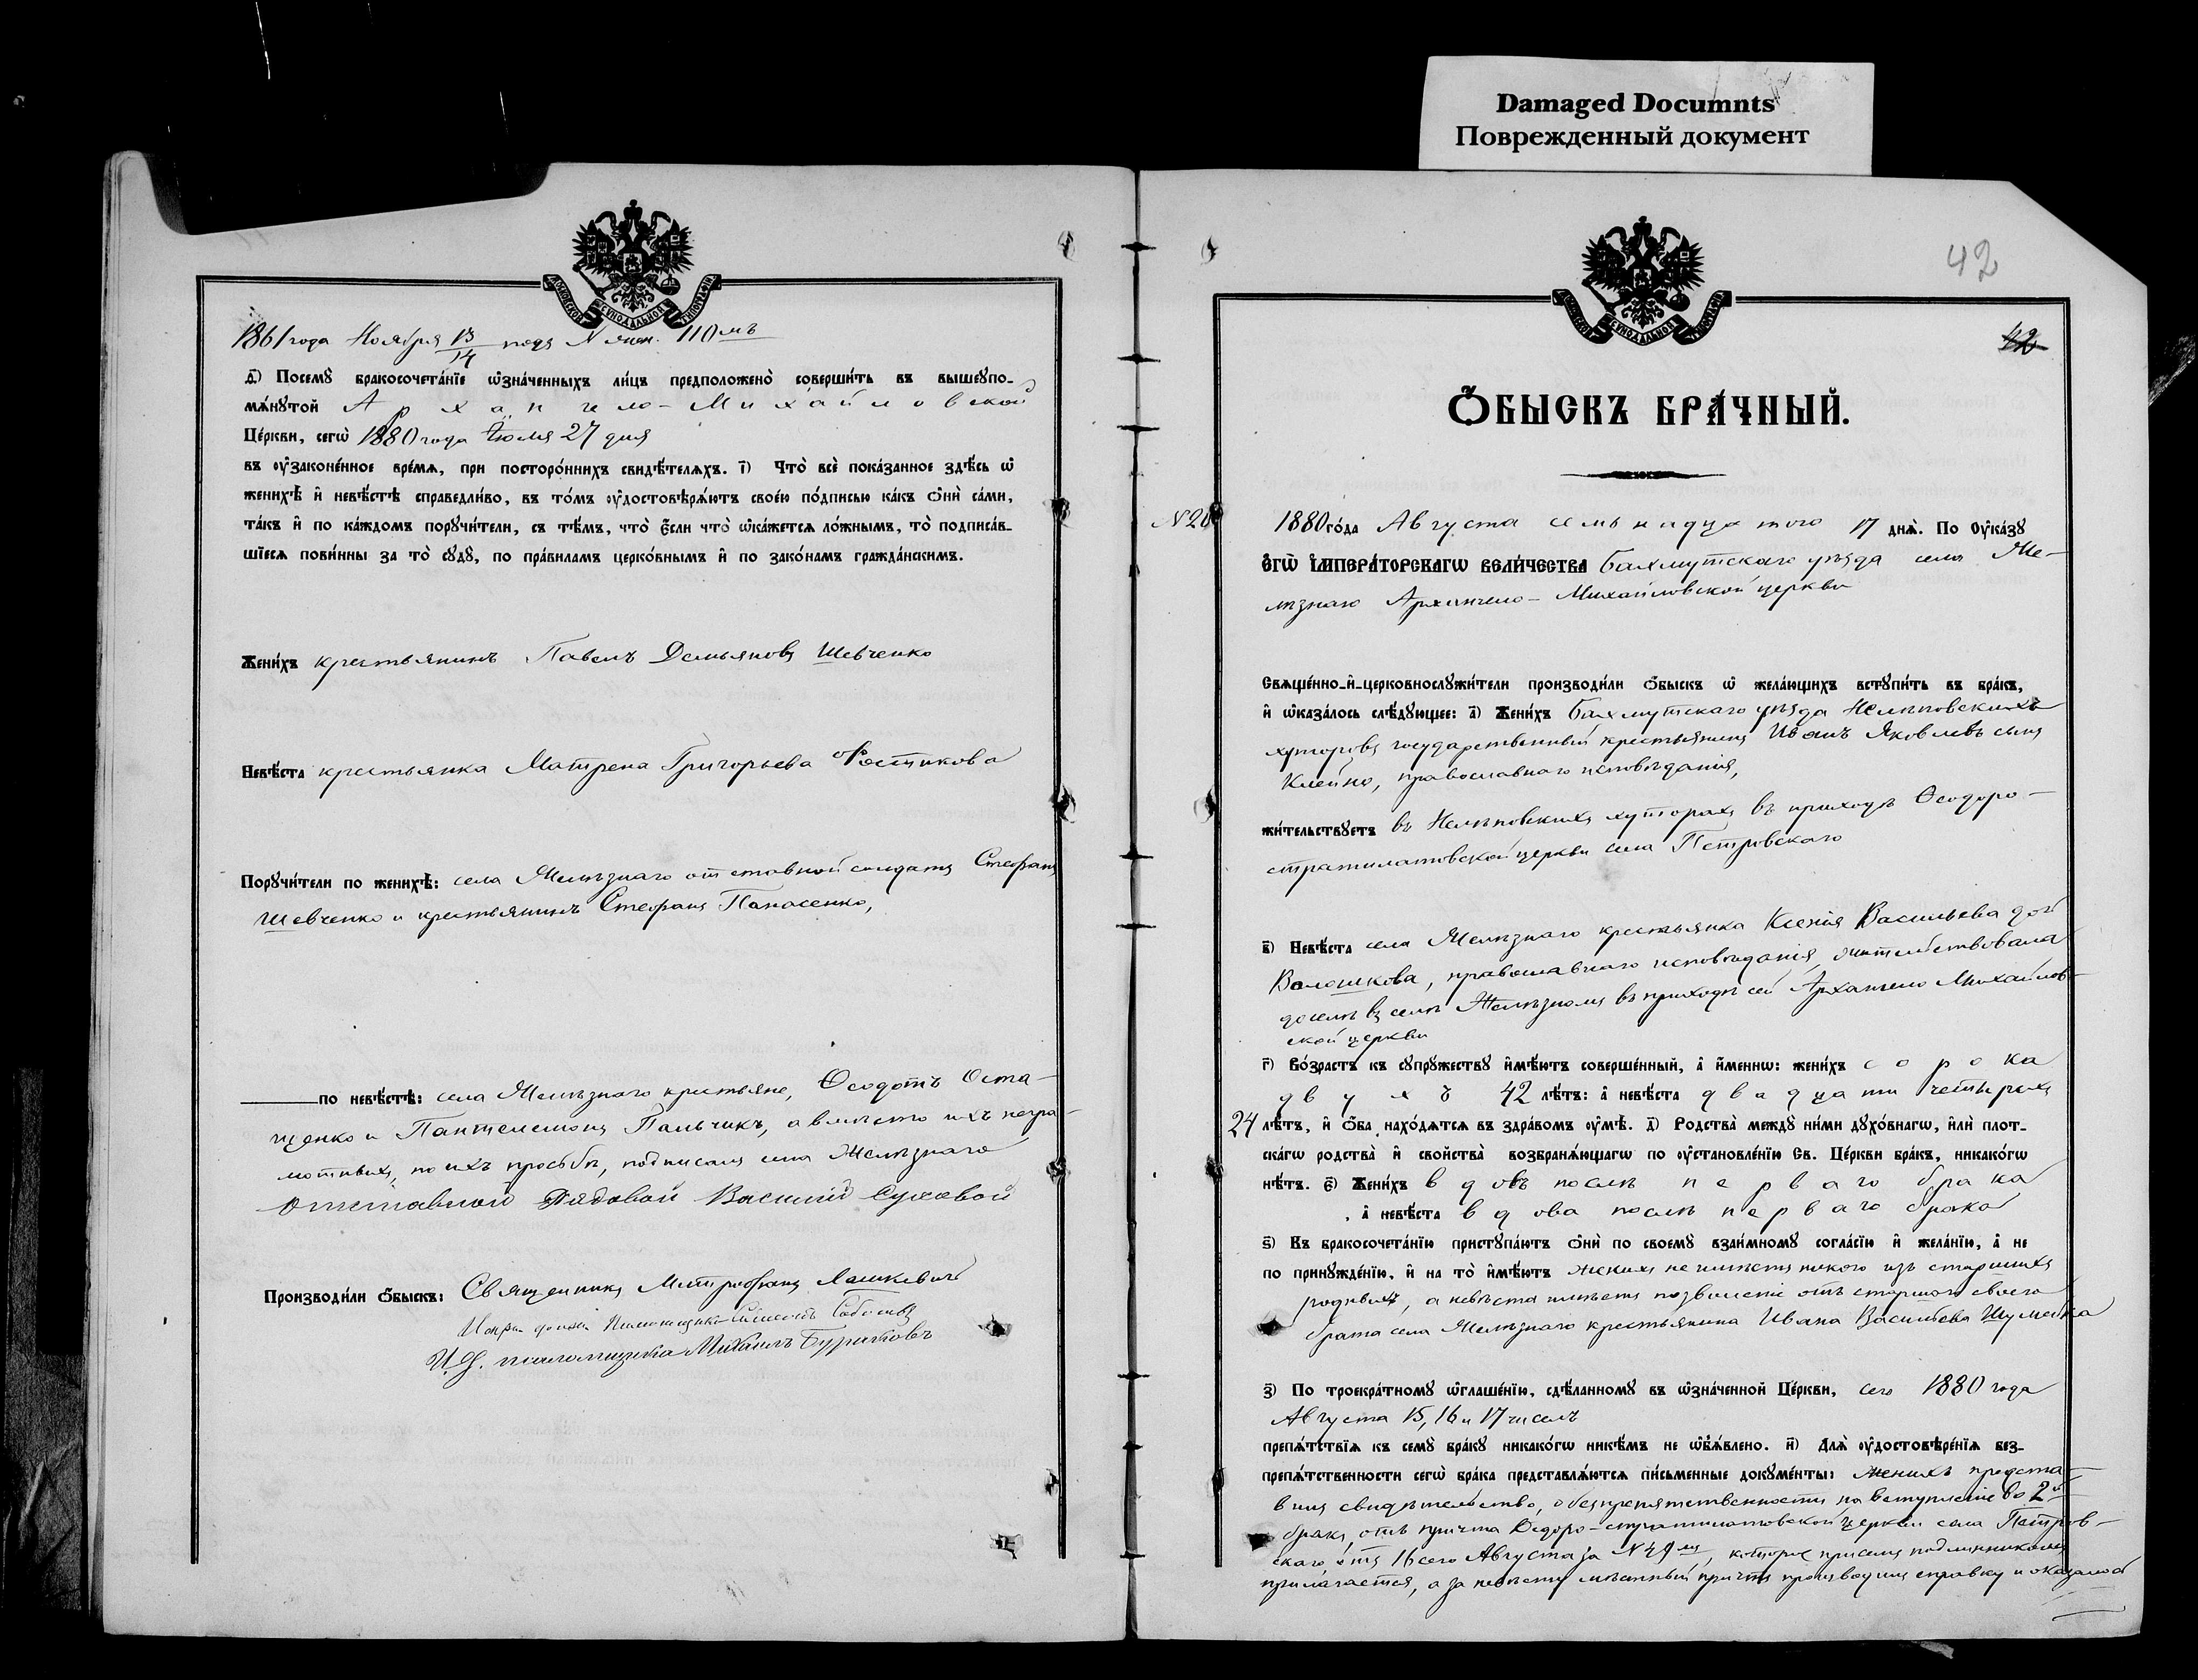 Damaged Documnts
Поврежденный документ
МОСКОВСКОЙ СѴНОДАЛЬНОЙ ТИПОГРАФІИ
1861 года Ноября 13/14 подъ N жен. 110мъ
д҃) Посемꙋ̀ бракосочета́нїе ѡ҆зна́ченныхъ ли́цъ предположено̀ соверши́ть въ вышеꙋпо-
мѧ́нꙋтой Архангело-Михайловской
Це́ркви, сегѡ̀ 1880 года Іюля 27 дня
въ ᲂу҆законе́нное вре́мѧ, при посторо́ннихъ свидѣ́телѧхъ. і҃) Что̀ всѐ пока́занное здѣ́сь ѡ҆
женихѣ̀ и҆ невѣ́стѣ справедли́во, въ то́мъ ᲂу҆достовѣрѧ́ютъ свое́ю по́дписью ка́къ ѻ҆нѝ са́ми,
та́къ и҆ по ка́ждомъ порꙋчи́тели, съ тѣ́мъ, что̀ є҆́сли что̀ ѡ҆ка́жетсѧ ло́жнымъ, то̀ подписа́в-
шїесѧ пови́нны за то̀ сꙋдꙋ̀, по пра́виламъ церко́внымъ и҆ по зако́намъ гражда́нскимъ.
Жени́хъ крестьянинъ Павелъ Демьяновъ Шевченко
Невѣ́ста крестьянка Матрена Григорьева Фостикова
Порꙋчи́тели по женихѣ̀: села Желѣзнаго отставной солдатъ Стефанъ
Шевченко и крестьянинъ Стефанъ Панасенко,
по невѣ́стѣ: села Желѣзнаго крестьяне, Ѳеодотъ Оста-
щенко и Пантелемонъ Пальчикъ, а вмѣсто ихъ негра-
мотныхъ, по ихъ просьбѣ, подписалъ села Желѣзнаго
Отставной Рядовой Василій Суховой
Производи́ли ѻ҆́быскъ: Священникъ Митрофанъ Лашкевичъ
И. д. псаломщика Михаилъ Буряковъ
42
42
МОСКОВСКОЙ СѴНОДАЛЬНОЙ ТИПОГРАФІИ
Ѻ҆́БЫСКЪ БРА́ЧНЫЙ.
N 20
1880 го́да Августа семнадцатого 17 днѧ̀. По Оу҆ка́зꙋ
Є҆ГѠ̀ І҆МПЕРА́ТОРСКАГѠ ВЕЛИ́ЧЕСТВА Бахмутскаго уѣзда села Же-
лѣзнаго Архангело-Михайловской церкви
Свѧще́нно-и҆-церковнослꙋжи́тели производи́ли ѻ҆́быскъ ѡ҆ жела́ющихъ встꙋпи́ть въ бра́къ,
и҆ ѡ҆каза́лось слѣ́дꙋющее: а҃) Жени́хъ Бахмутскаго уѣзда Нелѣповскихъ
хуторовъ государственный крестьянинъ Иванъ Яковлевъ сынъ
Клейно, православнаго исповѣданія,
жи́тельствꙋетъ въ Нелѣповскихъ хуторахъ въ приходѣ Ѳеодоро-
стратилатовской церкви села Петровскаго
в҃) Невѣ́ста села Желѣзнаго крестьянка Ксенія Васильева дочь
Волошкова, православнаго исповѣданія, жительствовала
доселѣ въ селѣ Желѣзномъ въ приходѣ сей Архангело Михайлов-
ской церкви
г҃) Во́зрастъ къ сꙋпрꙋ́жествꙋ и҆мѣ́ютъ соверше́нный, а҆ и҆́меннѡ: жени́хъ сорока
двухъ 42 лѣ́тъ: а҆ невѣ́ста двадцати четырехъ
24 лѣ́тъ, и҆ ѻ҆́ба нахо́дѧтсѧ въ здра́вомъ ᲂу҆мѣ̀. д҃) Родства̀ междꙋ̀ ни́ми дꙋхо́внагѡ, и҆лѝ плот-
ска́гѡ родства̀ и҆ свойства̀ возбранѧ́ющагѡ по ᲂу҆становле́нїю Св. Це́ркви бра́къ, никако́гѡ
нѣ́тъ. є҃) Жени́хъ вдовъ послѣ перваго брака
, а҆ невѣ́ста вдова послѣ перваго брака
ѕ҃) Въ бракосочета́нїю пристꙋпа́ютъ ѻ҆нѝ по своемꙋ̀ взаи́мномꙋ согла́сїю и҆ жела́нїю, а҆ не
по принꙋжде́нїю, и҆ на то̀ и҆мѣ́ютъ женихъ не имѣетъ никого изъ старшихъ
родныхъ, а невѣста имѣетъ позволеніе отъ старшаго своего
брата села Желѣзнаго крестьянина Ивана Васильева Шумейка
з҃) По троекра́тномꙋ ѡ҆глаше́нїю, сдѣ́ланномꙋ въ ѡ҆зна́ченной Це́ркви, сего 1880 года
Августа 15, 16 и 17 чиселъ
препѧ́тствїѧ къ семꙋ̀ бра́кꙋ никако́гѡ никѣ́мъ не ѡ҆б̾ѧ́влено. и҃) Длѧ̀ ᲂу҆достовѣре́нїѧ без-
препѧ́тственности сегѡ̀ бра́ка представлѧ́ютсѧ пи́сьменные докꙋме́нты: женихъ предста-
вилъ свидѣтельство, о безпрепятственности на вступленіе во 2й
бракъ, отъ причта Ѳедоро-стратилатовской церкви села Петров-
скаго отъ 16 сего Августа за N 49мъ, которое при семъ подлинникомъ
прилагается, а за невѣсту мѣстный причтъ производилъ справку и оказалось